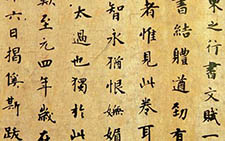 柬之行書文賦一
書結體遒勁有
者惟見此卷耳
智永猶恨嫵媚
太過也獨於此
歟至元四年歲在
六日揭傒斯跋